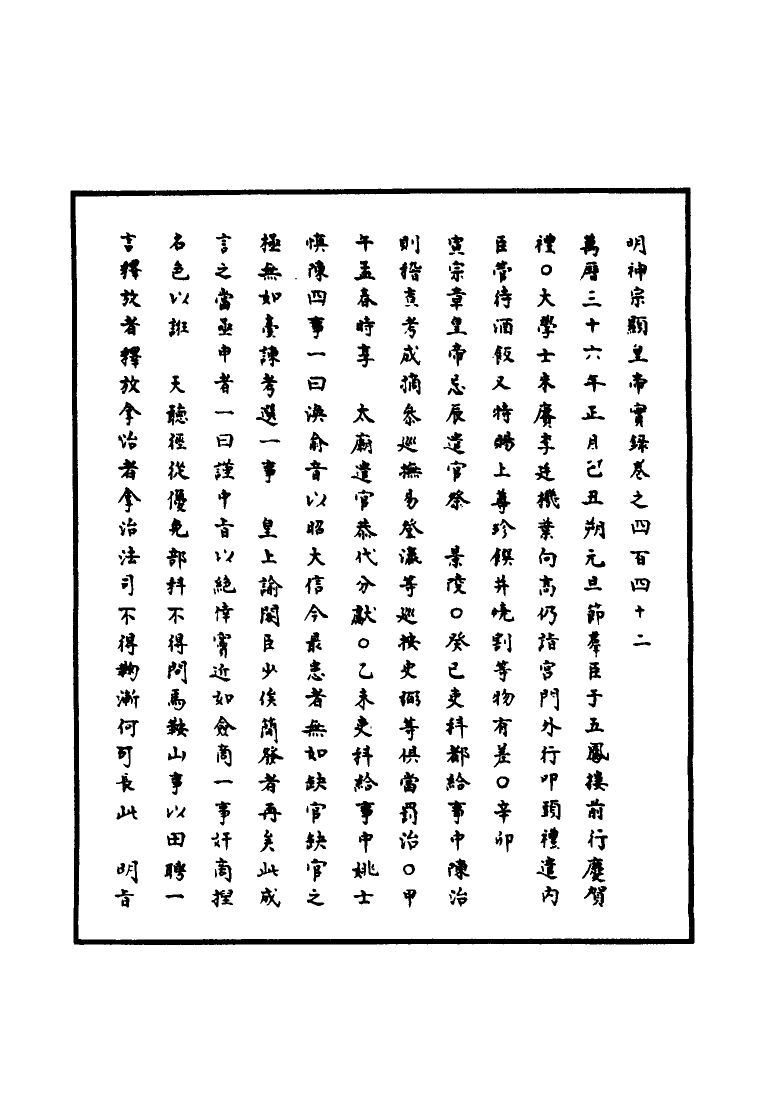 明神宗顯皇帝實錄卷之四百四十二
萬曆三十六年正月己丑朔元旦節羣臣于五鳳樓前行慶賀
禮○大學士朱賡李廷機葉向高仍詣宮門外行叩頭禮遣內
臣管待酒飯又特賜上尊珍饌并燒割等物有差○辛卯
宣宗章皇帝忌辰遣官祭　景陵○癸巳吏科都給事中陳治
則稽查考成摘參巡撫易登瀛等巡按史弼等俱當罰治○甲
午孟春時享　太廟遣官恭代分獻○乙未吏科給事中姚士
慎陳四事一曰渙俞音以昭大信今最患者無如缺官缺官之
極無如臺諫考選一事　皇上諭閣臣少俟簡發者再矣此成
言之當亟申者一曰謹中旨以絕倖竇近如僉商一事奸商捏
名色以誑　天聽徑從優免部科不得問馬鞍山事以田聘一
言釋放者釋放拿治者拿治法司不得鞫漸何可長此　明旨